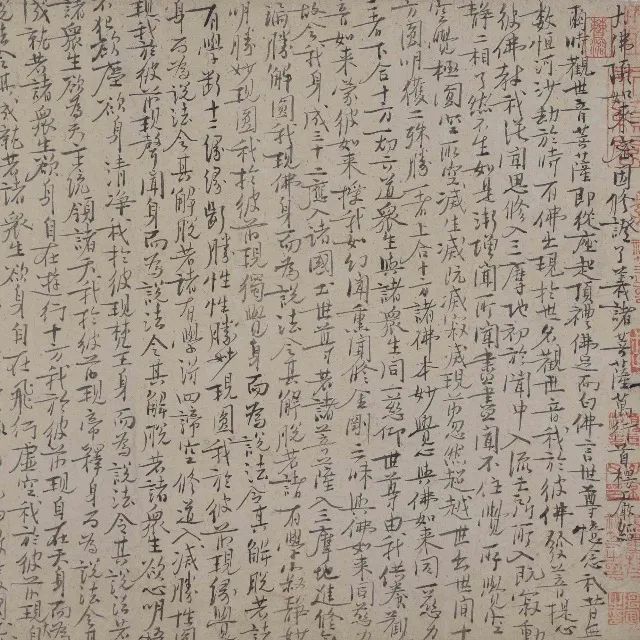 大佛頂如來密因修證了義諸菩薩萬行首楞嚴經
爾時觀世音菩薩即從座起頂禮佛足而白佛言世尊憶念我昔無
數恒河沙劫於時有佛出現於世名觀世音我於彼佛發菩提心
彼佛教我從聞思修入三摩地初於聞中入流亡所所入既寂動
靜二相了然不生如是漸增聞所聞盡盡聞不住覺所覺空
空覺極圓空所空滅生滅既滅寂滅現前忽然超越世出世間十
方圓明獲二殊勝一者上合十方諸佛本妙覺心與佛如來同一慈力
二者下合十方一切六道眾生與諸眾生同一悲仰世尊由我供養觀
音如來蒙彼如來授我如幻聞熏聞修金剛三昧與佛如來同慈力
故令我身成三十二應入諸國土世尊若諸菩薩入三摩地進修無
漏勝解圓我現佛身而為說法令其解脫若諸有學寂靜妙
明勝妙現圓我於彼前現獨覺身而為說法令其解脫若諸
有學斷十二緣緣斷勝性勝妙現圓我於彼前現緣覺
身而為說法令其解脫若諸有學得四諦空修道入滅勝性圓
現我於彼前現聲聞身而為說法令其解脫若諸眾生欲心明悟
不犯欲塵欲身清淨我於彼現梵王身而為說法令其說法若
諸眾生欲為天主統領諸天我於彼前現帝釋身而為說法令其
成就若諸眾生欲身自在遊行十方我於彼前現自在天身而為
說法令其成就若諸眾生欲身自在飛行虛空我於彼前現自